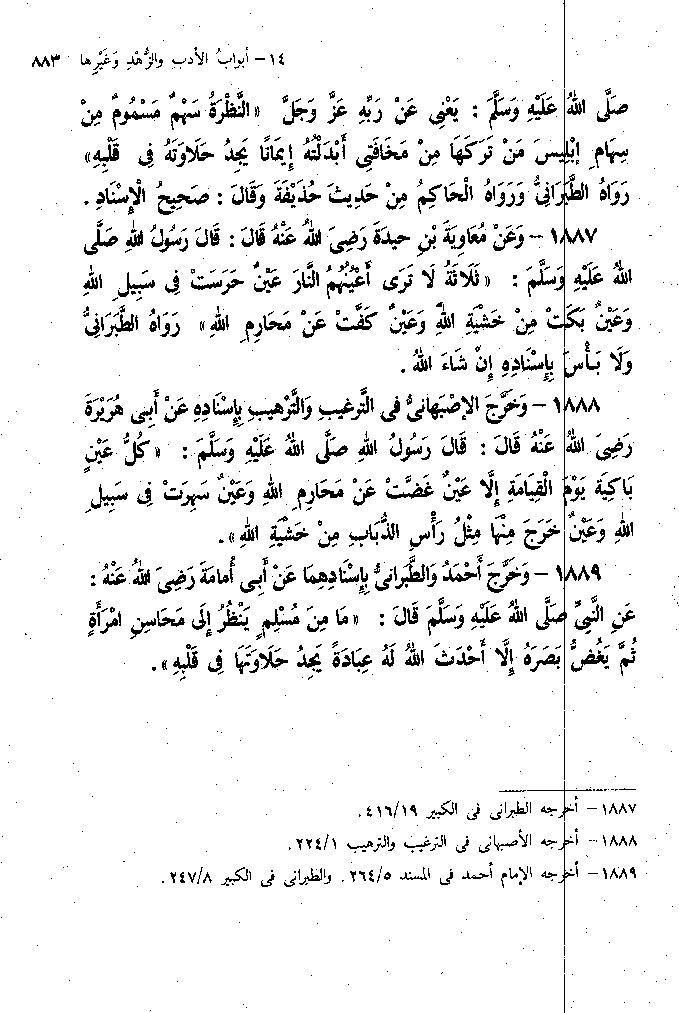 ١٤ – أبوابُ الأدب والزُّهْدِ وَغَيْرِها ٨٨٣
صَلَّى اللهُ عَلَيْهِ وَسَلَّمَ : يَعْنِي عَنْ رَبِّهِ عَزَّ وَجَلَّ «النَّظْرَةُ سَهْمٌ مَسْمُومٌ مِنْ
سِهَامِ إِبْلِيسَ مَنْ تَرَكَهَا مِنْ مَخَافَتِي أَبْدَلْتُهُ إِيمَانًا يَجِدُ حَلَاوَتَهُ فِى قَلْبِهِ»
رَوَاهُ الطَّبَرَانِيُّ وَرَوَاهُ الْحَاكِمُ مِنْ حَدِيثِ حُذَيْفَةَ وَقَالَ : صَحِيحُ الْإِسْنَادِ .
١٨٨٧ – وَعَنْ مُعَاوِيَةَ بْنِ حيدَةَ رَضِىَ اللهُ عَنْهُ قَالَ : قَالَ رَسُولُ اللهِ صَلَّى
اللهُ عَلَيْهِ وَسَلَّمَ : «ثَلَاثَةٌ لَا تَرَى أَعْيُنُهُمُ النَّارَ عَيْنٌ حَرَسَتْ فِى سَبِيلِ اللهِ
وَعَيْنٌ بَكَتْ مِنْ خَشْيَةِ اللهِ وَعَيْنٌ كَفَّتْ عَنْ مَحَارِمِ اللهِ» رَوَاهُ الطَّبَرَانِىُّ
وَلَا بَأْسَ بِإِسْنَادِهِ إِنْ شَاءَ اللهُ .
١٨٨٨ – وَخَرَّجَ الإِصْبَهانىُّ فى التَّرغيبِ والتَّرْهيبِ بِإِسْنَادِهِ عَنْ أَبِى هُرَيْرَةَ
رَضِىَ اللهُ عَنْهُ قَالَ : قَالَ رَسُولُ اللهِ صَلَّى اللهُ عَلَيْهِ وَسَلَّمَ : «كُلُّ عَيْنٍ
بَاكِيَةٌ يَوْمَ الْقِيَامَةِ إِلَّا عَيْنٌ غَضَّتْ عَنْ مَحَارِمِ اللهِ وَعَيْنٌ سَهِرَتْ فِى سَبِيلِ
اللهِ وَعَيْنٌ خَرَجَ مِنْهَا مِثْلُ رَأْسِ الذُّبَابِ مِنْ خَشْيَةِ اللهِ».
١٨٨٩ – وَخَرَّجَ أَحْمَدُ والطَّبرانىُّ بِإِسْنَادِهِمَا عَنْ أَبِى أُمَامَةَ رَضِىَ اللهُ عَنْهُ :
عَنِ النَّبِىِّ صَلَّى اللهُ عَلَيْهِ وَسَلَّمَ قَالَ : «مَا مِنْ مُسْلِمٍ يَنْظُرُ إِلَى مَحَاسِنِ امْرَأَةٍ
ثُمَّ يَغُضُّ بَصَرَهُ إِلَّا أَحْدَثَ اللهُ لَهُ عِبَادَةً يَجِدُ حَلَاوَتَهَا فِى قَلْبِهِ».
١٨٨٧ – أخرجه الطبرانى فى الكبير ٤١٦/١٩ .
١٨٨٨ – أخرجه الأصبهانى فى الترغيب والترهيب ٢٢٤/١ .
١٨٨٩ – أخرجه الإمام أحمد فى المسند ٢٦٤/٥ . والطبرانى فى الكبير ٢٤٧/٨ .